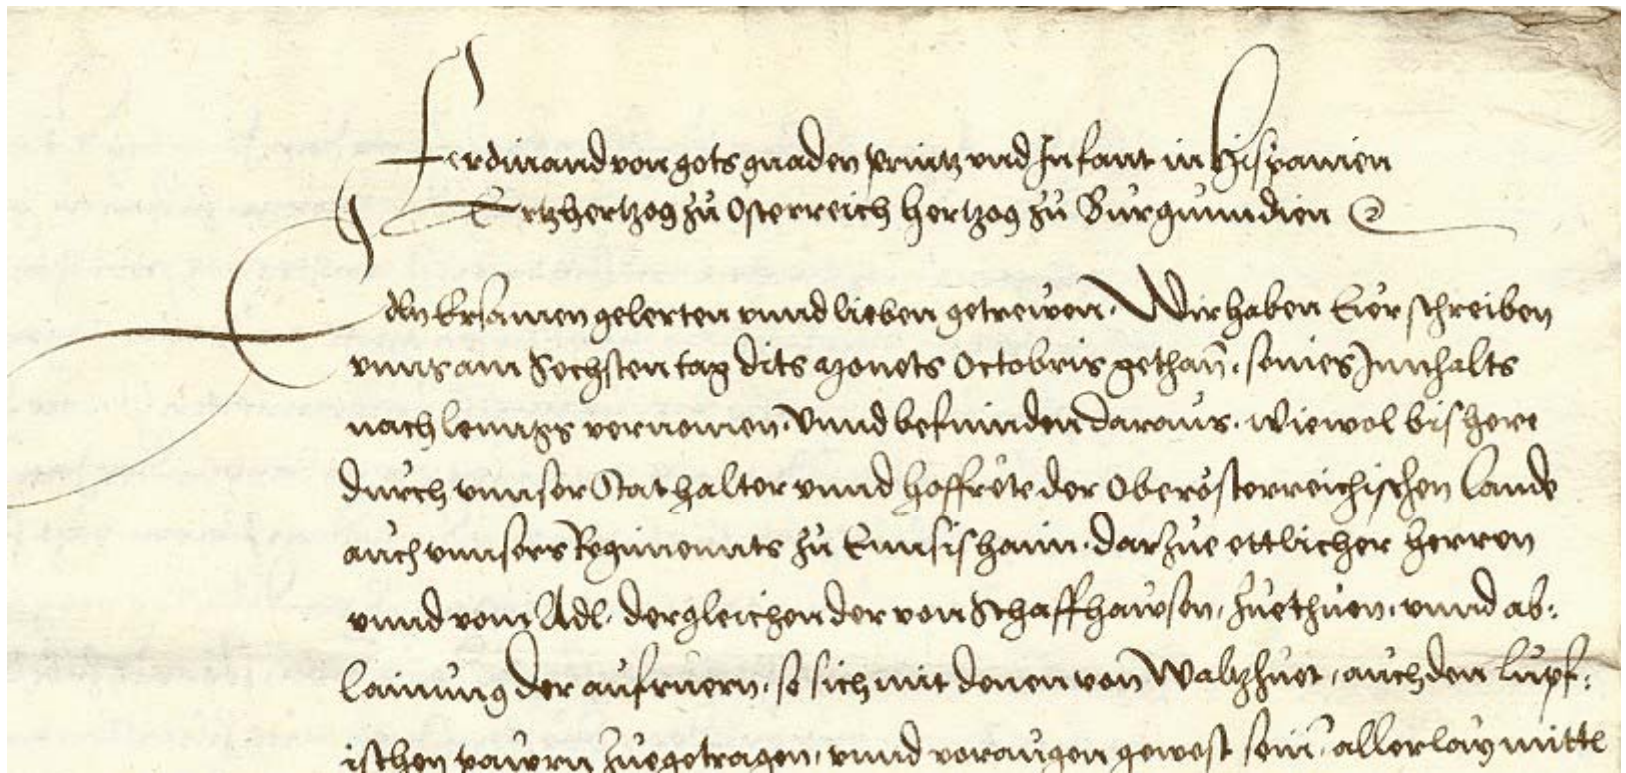 Ferdinand von gots gnaden printz vnd Infant in Hispanien
Ertzhertzog zů Osterreich hertzog zů Burgunndien
Edln Ersamen gelerten vnnd lieben getrewen. Wir haben Eůr schreiben
vnns am Sechsten tag dits monets Octobris gethan̄. seines Innhalts
nach lenngs vernomen, Vnnd befinnden daraus. wiewol bishere
durch vnnser Stathalter vnnd hoffrete der Oberösterreichischen Lannde
auch vnnsers Regimennts zů Ennsishaim. darzue ettlicher herren
vnnd vom Adl. dergleichen der von Schaffhawsen, zuethuen, vnnd ab:
lainung der aufruern. so sich mit denen von Waltzhuet, auch den Lupf:
ischen pawrn zuegetragen, vnnd voraugen gewest sein̄. allerlay mittl